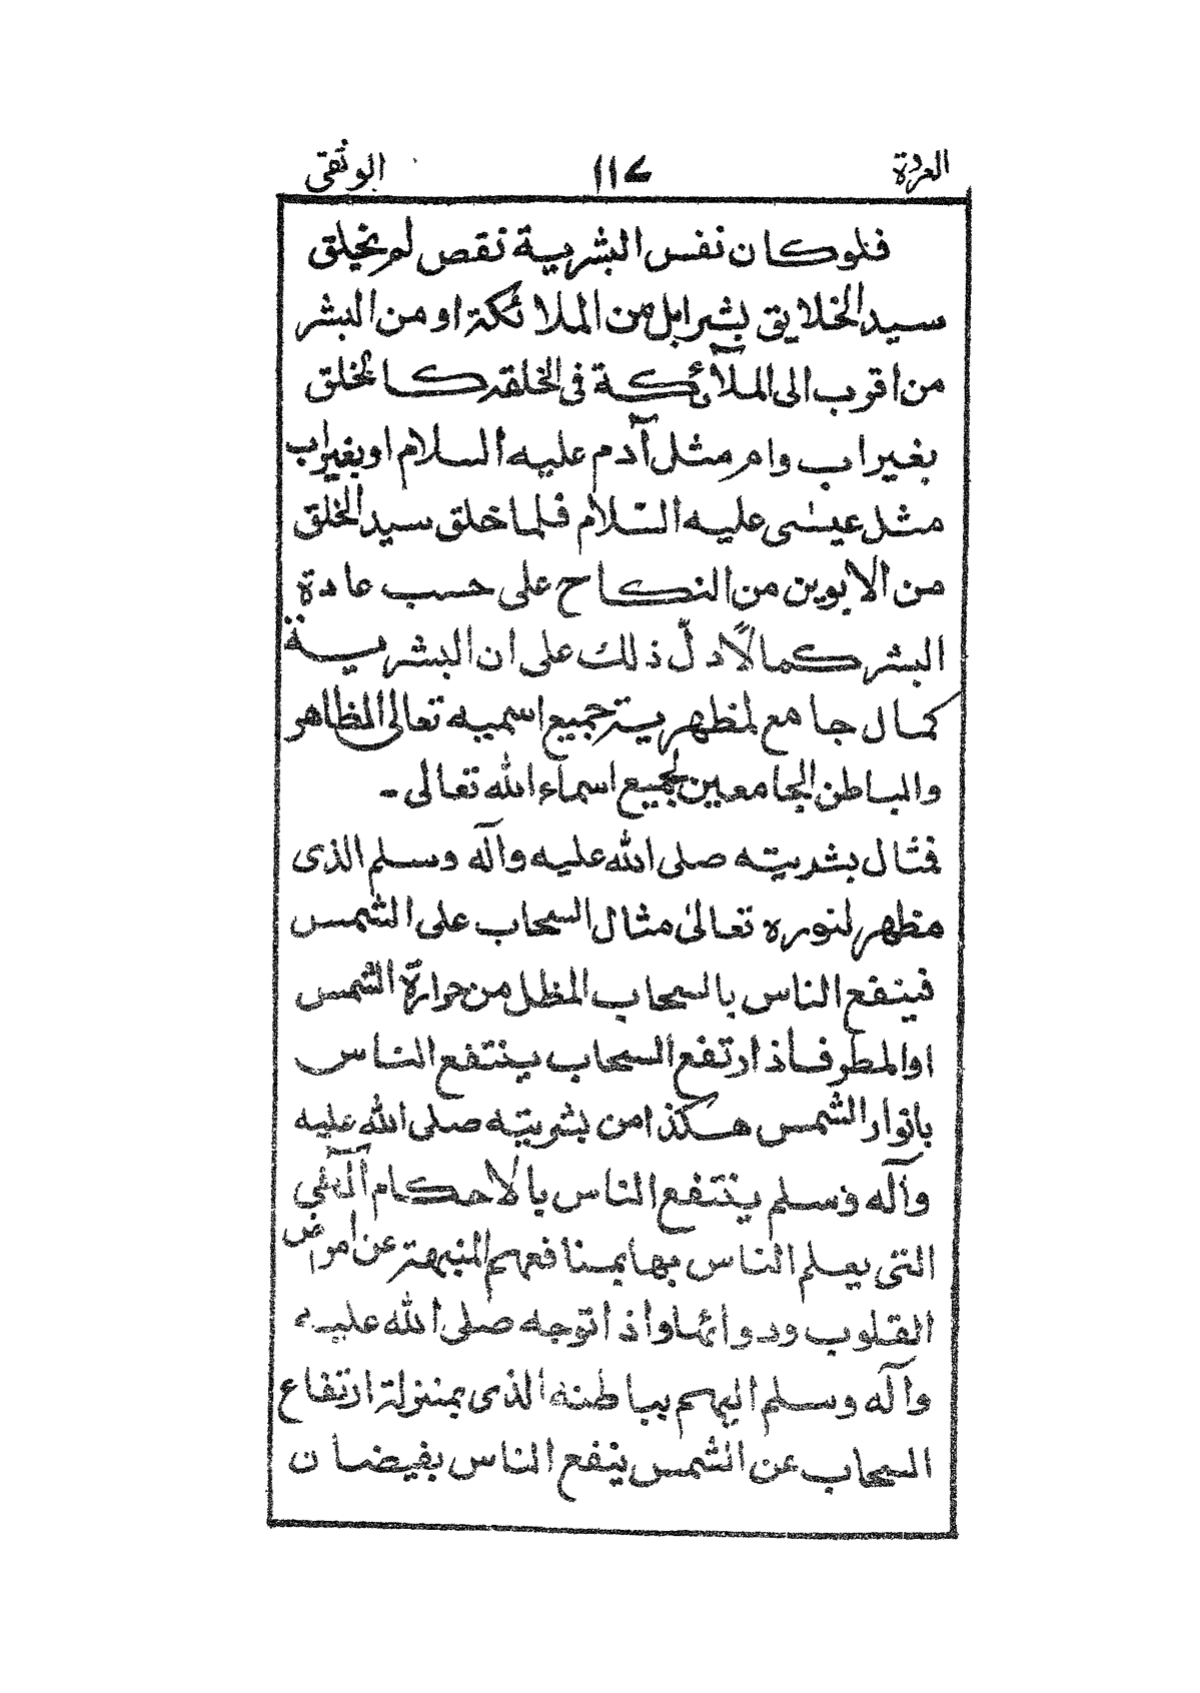 العروة ١١٧ الوثقى
فلوكان نفس البشرية نقص لم يخلق
سيد الخلايق بشرا بل من الملائكة او من البشر
من اقرب الى الملآئكة فى الخلقة كا لخلق
بغير اب وام مثل آدم عليه السلام او بغير اب
مثل عيسٰى عليه السّلام فلما خلق سيد الخلق
من الابوين من النكاح على حسب عادة
البشر كمالاً دلّ ذلك على ان البشرية
كمال جامع لمظهرية جميع اسميه تعالى المظاهر
والباطن الجامعين لجميع اسماء الله تعالى -
فمثال بشريته صلى الله عليه وآله وسلم الذى
مظهر لنوره تعالىٰ مثال السحاب على الشمس
فينفع الناس بالسحاب المظل من حرارة الشمس
او المطر فاذ ارتفع السحاب ينتفع الناس
بانوار الشمس هكذا من بشريته صلى الله عليه
وآله وسلم ينتفع الناس بالاحكام آلهٰى
التى يعلم الناس بها بمنافعهم المنبهة عن امراض
القلوب ودوائها واذ اتوجه صلى الله عليه
وآله وسلم اليهم بباطنه الذى بمنزلة ارتفاع
السحاب عن الشمس ينفع الناس بفيضان